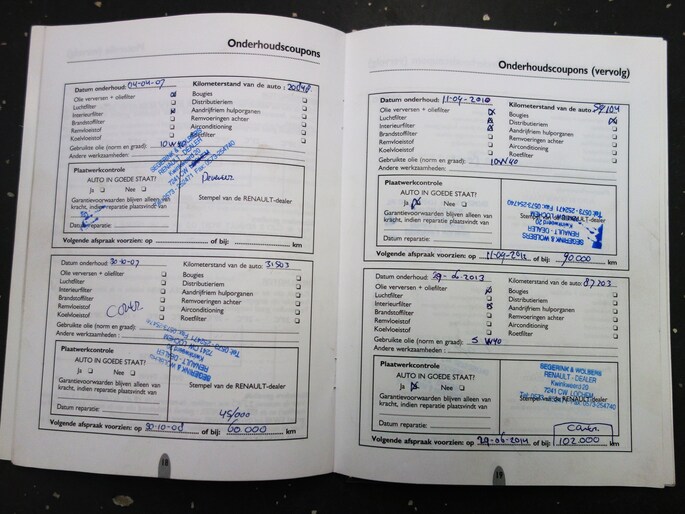 Onderhoudscoupons
Datum onderhoud: 04-04-07 Kilometerstand van de auto :
Olie verversen + oliefilter Bougies
Luchtfilter Distributieriem
Interieurfilter Aandrijfriem hulporganen
Brandstoffilter Remvoeringen achter
Remvloeistof Airconditioning
Koelvloeistof Roetfilter
Gebruikte olie (norm en graad): 10W40
Andere werkzaamheden:
Plaatwerkcontrole
AUTO IN GOEDE STAAT?
Ja Nee
Garantievoorwaarden blijven alleen van
kracht, indien reparatie plaatsvindt van
Datum reparatie:
Stempel van de RENAULT-dealer
SEGERINK & WOLBERS
RENAULT - DEALER
Volgende afspraak voorzien: op of bij: km
Datum onderhoud: 30-10-07 Kilometerstand van de auto: 31503
Olie verversen + oliefilter Bougies
Luchtfilter Distributieriem
Interieurfilter Aandrijfriem hulporganen
Brandstoffilter Remvoeringen achter
Remvloeistof Airconditioning
Koelvloeistof Roetfilter
Gebruikte olie (norm en graad):
Andere werkzaamheden:
Plaatwerkcontrole
AUTO IN GOEDE STAAT?
Ja Nee
Garantievoorwaarden blijven alleen van
kracht, indien reparatie plaatsvindt van
Datum reparatie:
SEGERINK & WOLBERS
RENAULT - DEALER
Stempel van de RENAULT-dealer
45/000
Volgende afspraak voorzien: op 30-10-08 of bij: 60.000 km
18
Onderhoudscoupons (vervolg)
Datum onderhoud: 11-04-2010 Kilometerstand van de auto:
Olie verversen + oliefilter Bougies
Luchtfilter Distributieriem
Interieurfilter Aandrijfriem hulporganen
Brandstoffilter Remvoeringen achter
Remvloeistof Airconditioning
Koelvloeistof Roetfilter
Gebruikte olie (norm en graad): 10W40
Andere werkzaamheden:
Plaatwerkcontrole
AUTO IN GOEDE STAAT?
Ja Nee
Garantievoorwaarden blijven alleen van
kracht, indien reparatie plaatsvindt van
Datum reparatie:
SEGERINK & WOLBERS
RENAULT - DEALER
Kwinkweerd 20
Tel. 0573-252471 Fax: 0573-254740
Volgende afspraak voorzien: op of bij: 90.000 km
Datum onderhoud: 29-6-2013 Kilometerstand van de auto: 87203
Olie verversen + oliefilter Bougies
Luchtfilter Distributieriem
Interieurfilter Aandrijfriem hulporganen
Brandstoffilter Remvoeringen achter
Remvloeistof Airconditioning
Koelvloeistof Roetfilter
Gebruikte olie (norm en graad): 5W40
Andere werkzaamheden :
Plaatwerkcontrole
AUTO IN GOEDE STAAT?
Ja Nee
Garantievoorwaarden blijven alleen van
kracht, indien reparatie plaatsvindt van
Datum reparatie:
SEGERINK & WOLBERS
RENAULT - DEALER
Kwinkweerd 20
7241 CW LOCHEM
Stempel van de RENAULT-dealer
Volgende afspraak voorzien: op 29-06-2014 of bij: 102.000 km
19